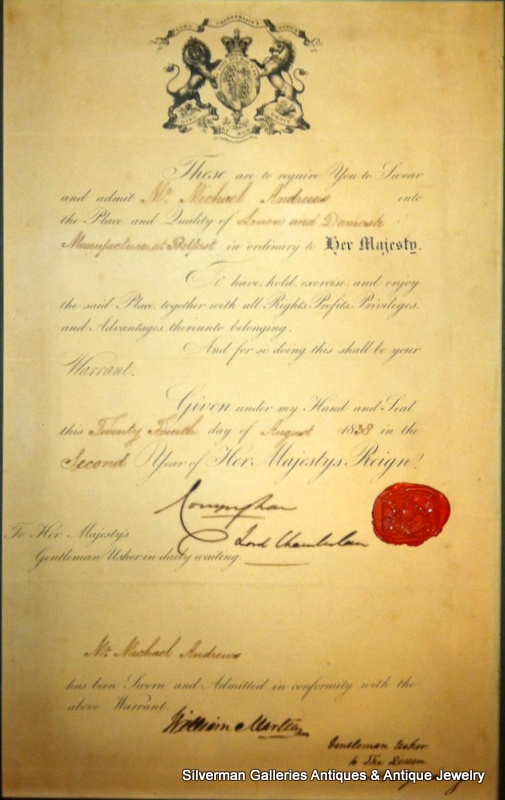 LORD CHAMBERLAIN'S OFFICE
DIEU ET MON DROIT
These are to require You to Swear
and admit Mr. Michael Andrews into
the Place and Quality of Linen and Damask
Manufacturer at Belfast in ordinary to Her Majesty.
To have, hold, exercise and enjoy
the said Place, together with all Rights, Profits, Privileges,
and Advantages thereunto belonging.
And for so doing this shall be your
Warrant.
Given under my Hand and Seal
this Twenty Fourth day of August 1838 in the
Second Year of Her Majestys Reign.
Conyngham
Lord Chamberlain
To Her Majesty's
Gentleman Usher in daily waiting.
Mr. Michael Andrews
has been Sworn and Admitted in conformity with the
above Warrant.
William Martin
Gentleman Usher
to The Queen
Silverman Galleries Antiques & Antique Jewelry